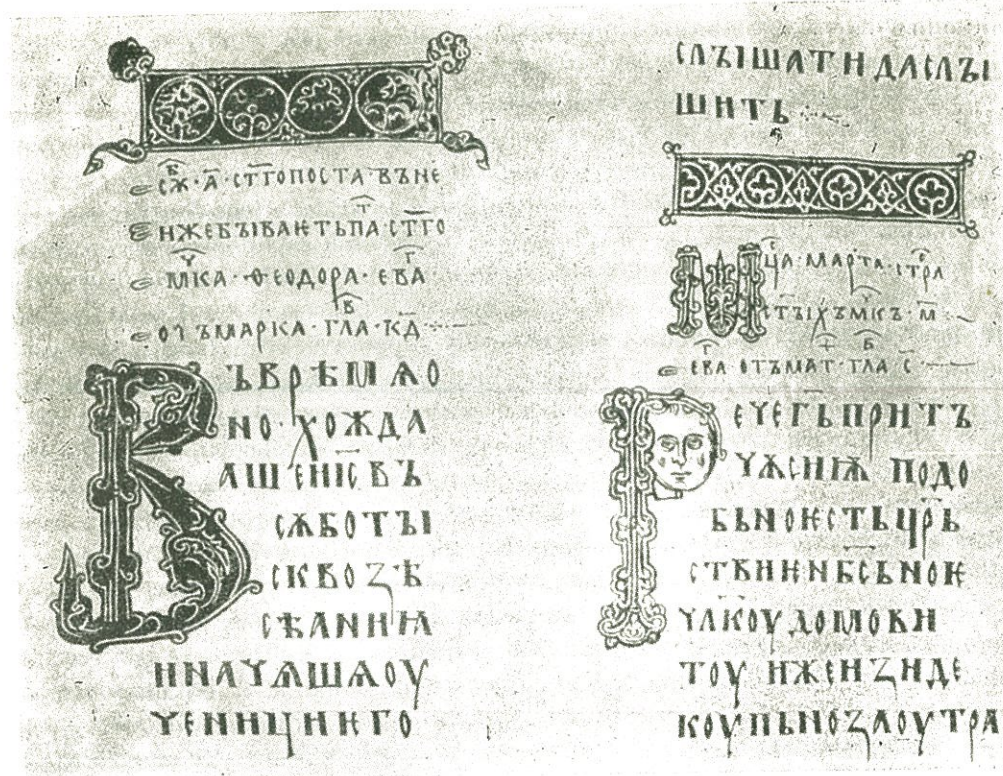 сѫ · а҃ · ст҃гопоста въне
инжебꙑваѥтьпа ст҃го
м҃ка · ѳеодора · ева
отъмарка · гла · к҃д
Въврѣмѧо
но · хожда
ашеиі҃св ъ
сѫботꙑ
сквоꙁѣ
сѣаниꙗ
иначѧшѧоу
ченициѥго
слꙑшатидаслꙑ
шить
Мц҃а · марта · стра
ст҃ꙑхъмк҃ъ · м҃
ева отъмат · гла · с҃
Речегь҃притъ
чѫсиѭ подо
бьноѥстьцр҃ь
ствиѥнбс҃ьноѥ
чл҃коудомови
тоу ижеиꙁиде
коупьноꙁаоутра